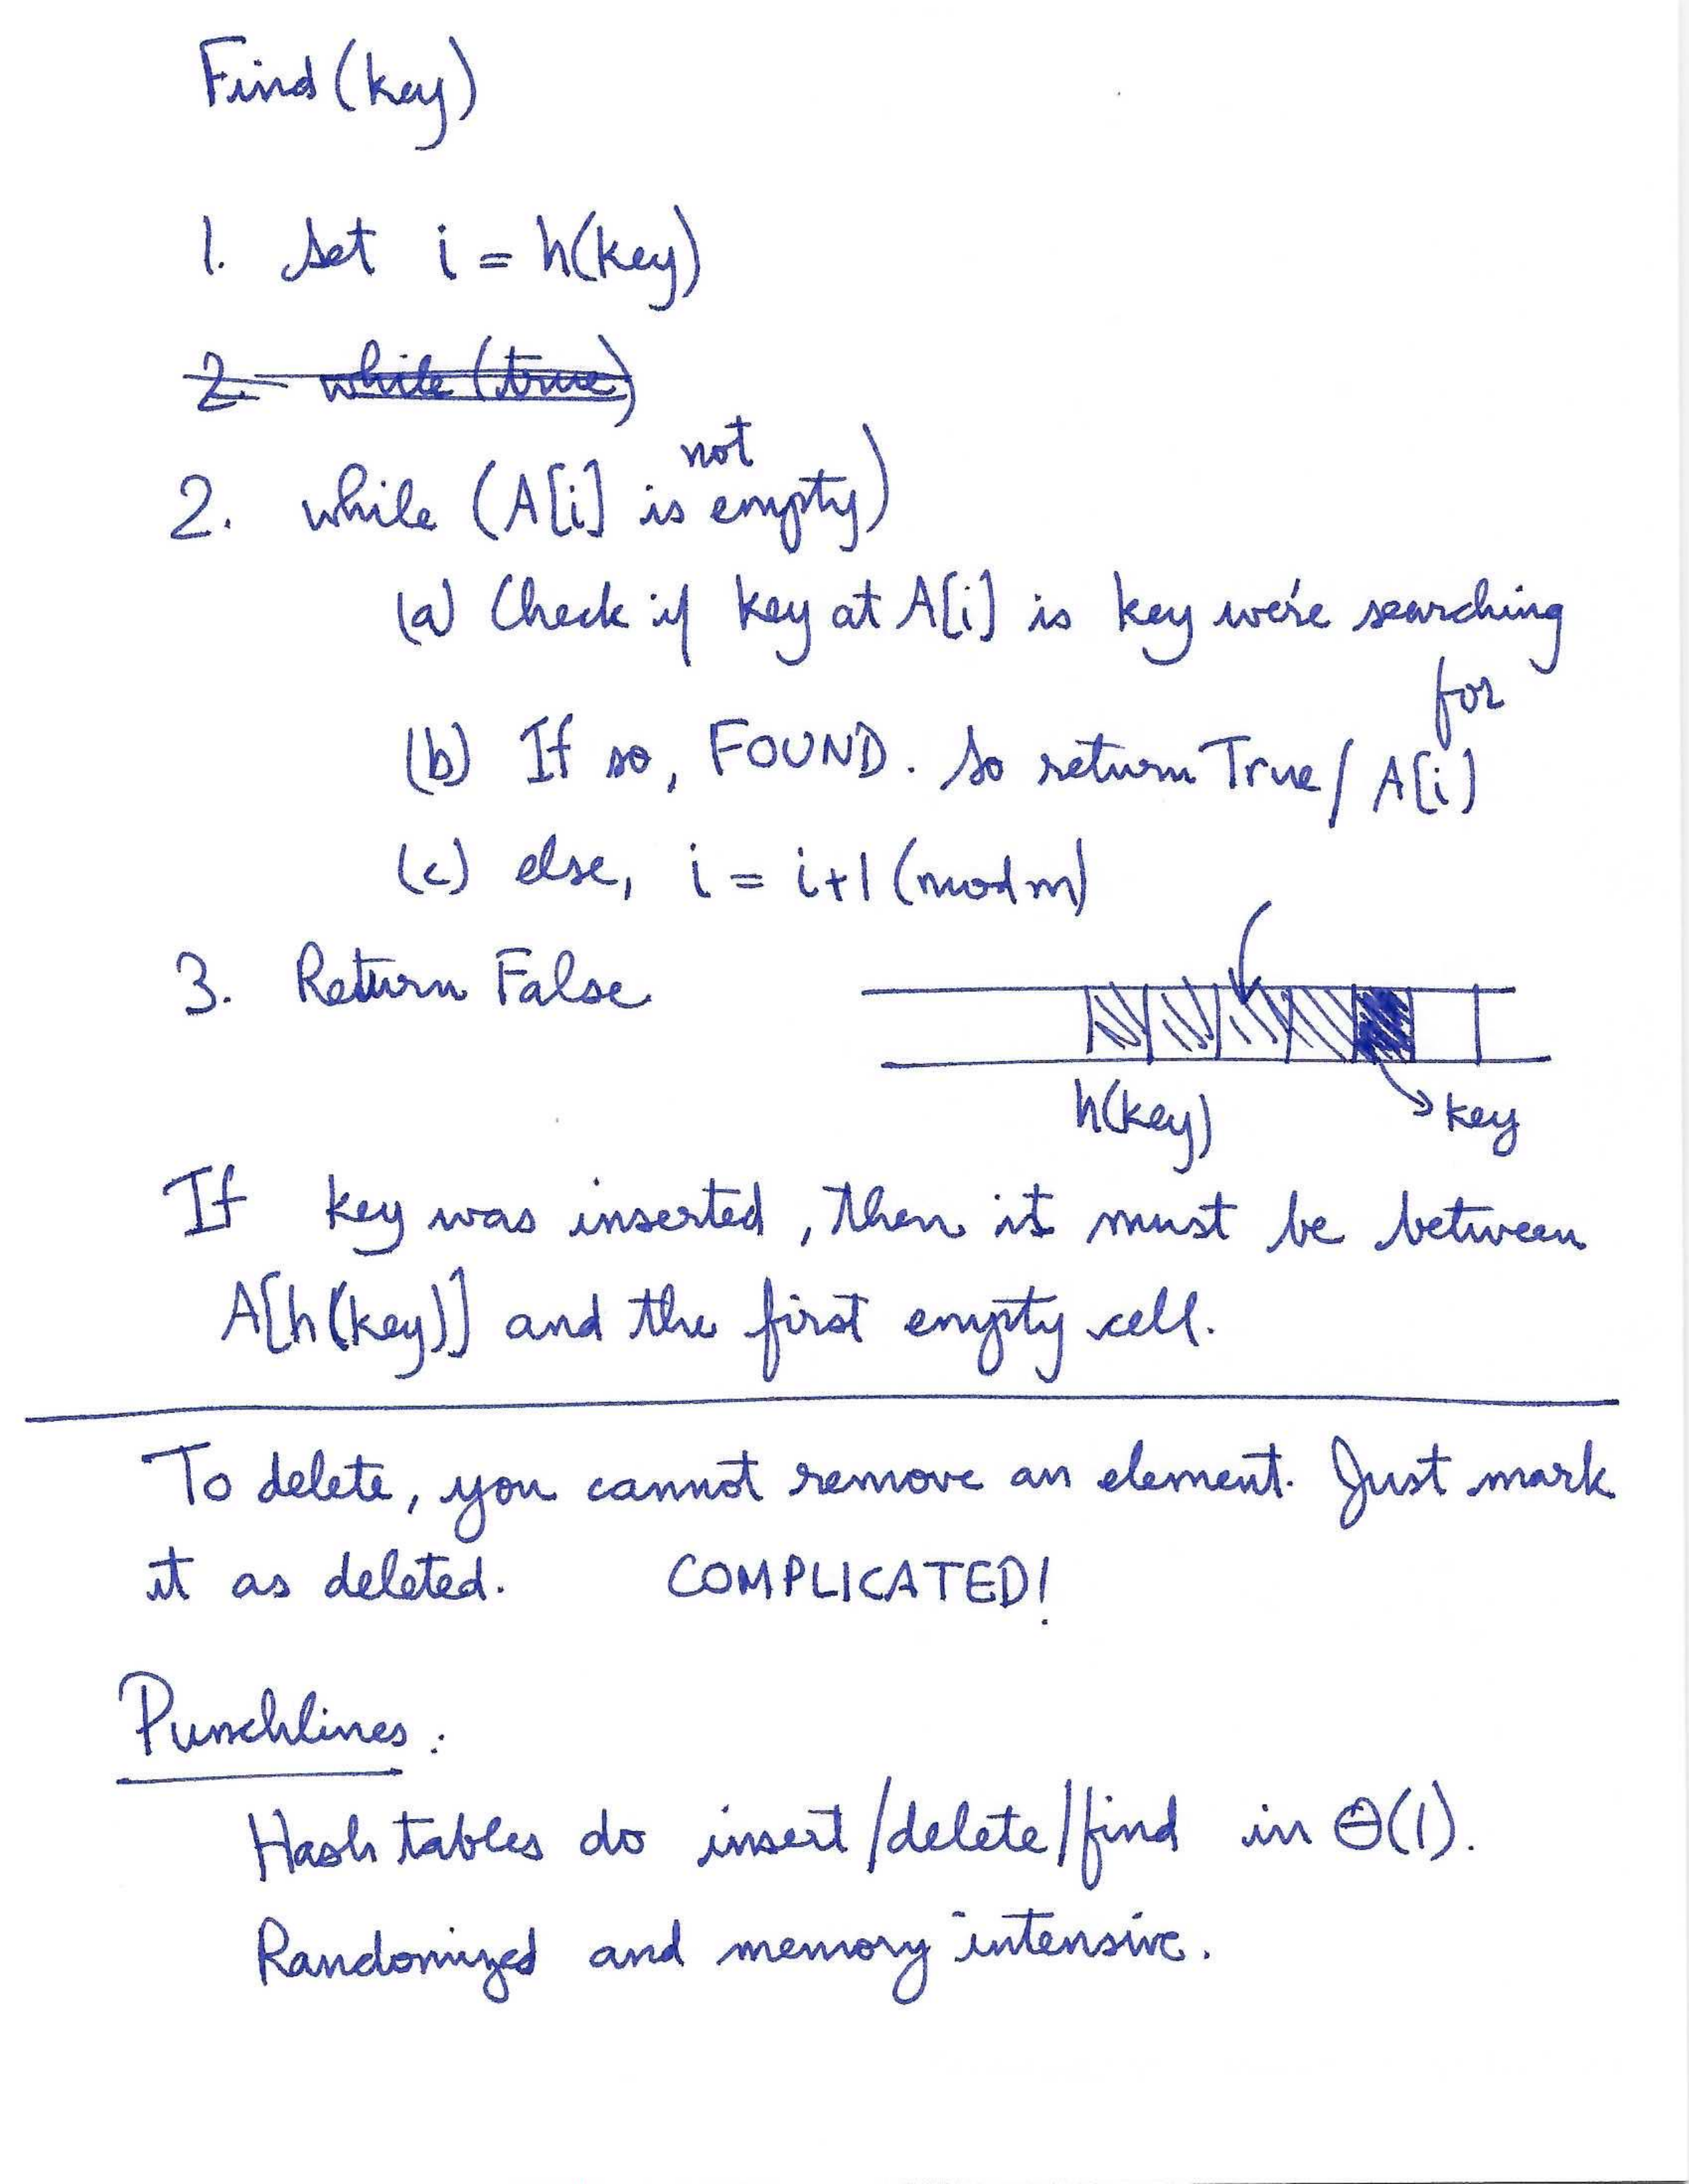 Find(key)
1. Set i = h(key)
2. while (true)
2. while (A[i] is not empty)
(a) Check if key at A[i] is key we're searching for
(b) If so, FOUND. So return True/A[i]
(c) else, i = i+1 (mod m)
3. Return False
h(key)
key
If key was inserted, then it must be between
A[h(key)] and the first empty cell.
To delete, you cannot remove an element. Just mark
it as deleted. COMPLICATED!
Punchlines:
Hash tables do insert/delete/find in Θ(1).
Randomized and memory intensive.